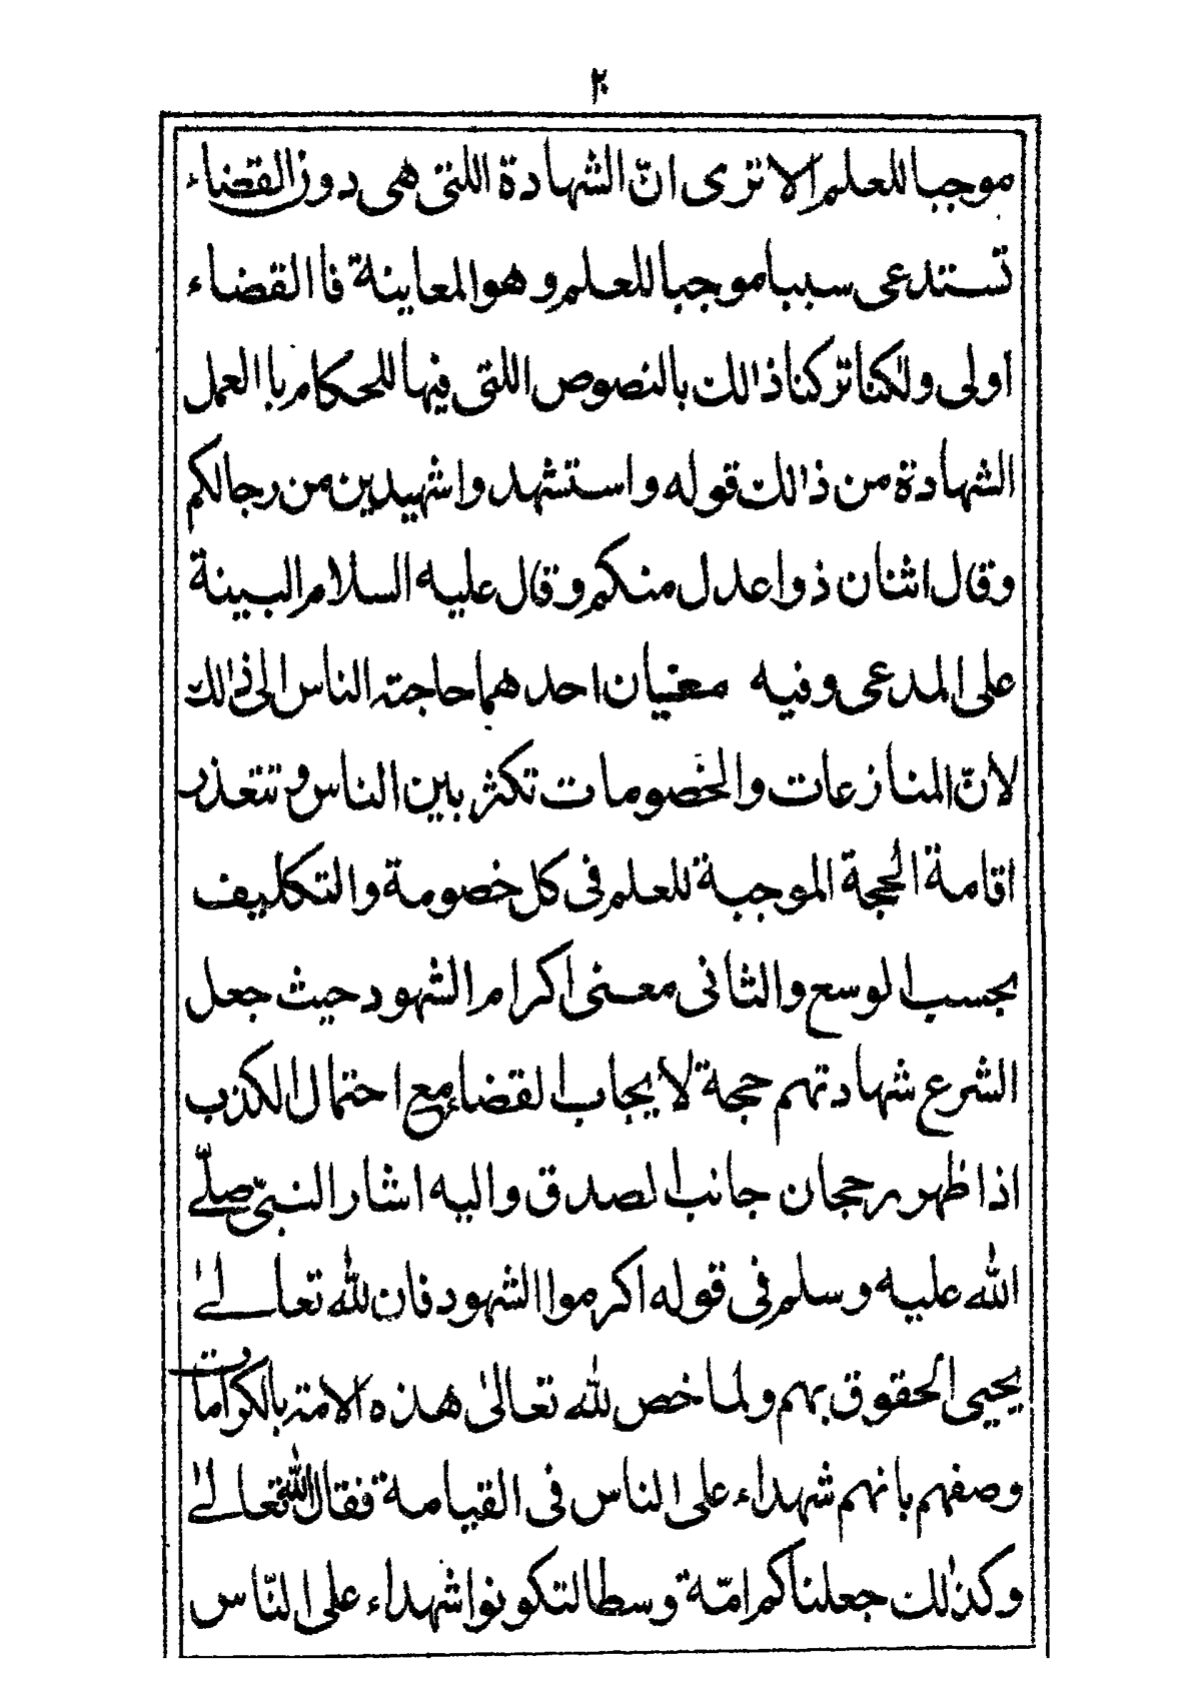 ٢٠
موجبا للعلم الا ترى انّ الشهادة اللتى هى دون القضاء
تستدعى سببا موجبا للعلم و هو المعاينة فا القضاء
اولى ولكنا تركنا ذالك بالنصوص اللتى فيها للحكام با العمل
الشهادة من ذالك قوله و استشهدوا شهيدين من رجالكم
وقال اثنان ذوا عدل منكم و قال عليه السلام البينة
على المدعى وفيه معنيان احدهما حاجته الناس الى ذالك
لانّ المنازعات والخصومات تكثر بين الناس و تتعذر
اقامة الحجة الموجبة للعلم فى كل خصومة والتكليف
بحسب الوسع والثانى معنى اكرام الشهود حيث جعل
الشرع شهادتهم حجة لا يجاب القضاء مع احتمال الكذب
اذا ظهر رجحان جانب الصدق واليه اشار النبىّ صلّے
الله عليه وسلم فى قوله اكرموا الشهود فان لله تعالےٰ
يحيى الحقوق بهم ولما خص لله تعالىٰ هذه الامته بالكرامات
وصفهم بانهم شهداء على الناس فى القيامة فقال الله تعالےٰ
وكذٰلك جعلناكم امّة وسطا لتكونوا شهداء على النّاس